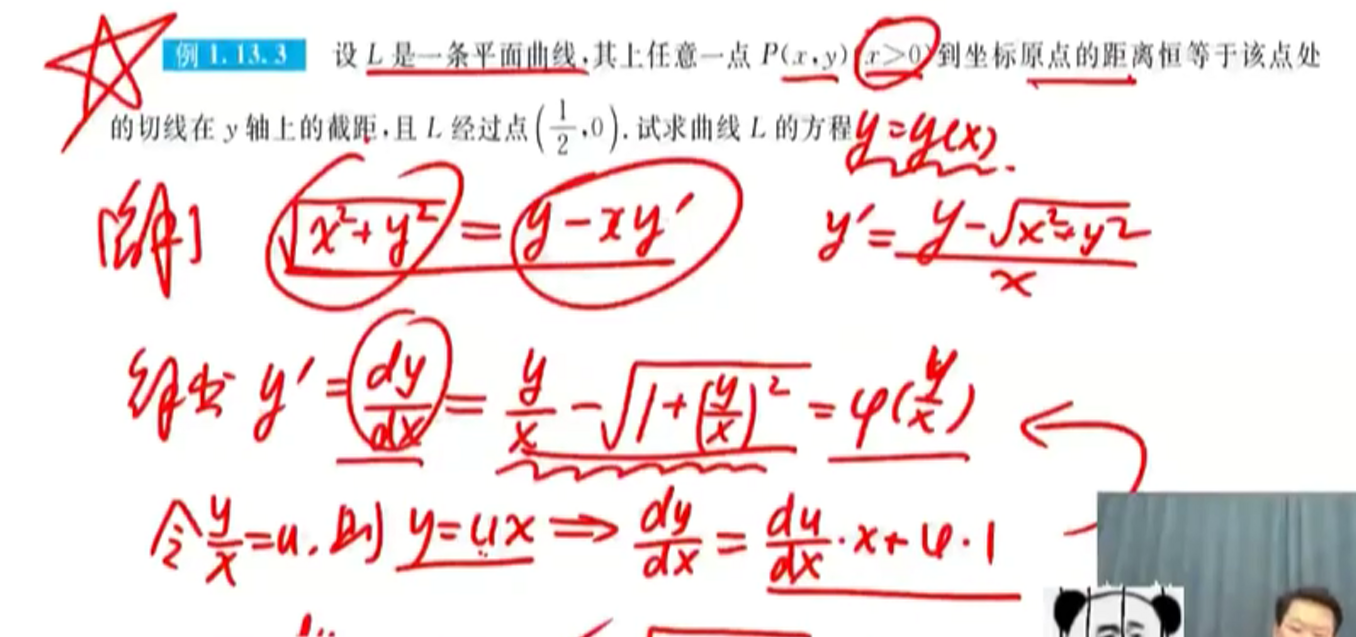 例 1.13.3 设 L 是一条平面曲线,其上任意一点 P(x,y)(x>0)到坐标原点的距离恒等于该点处
的切线在 y 轴上的截距,且 L 经过点(1/2,0).试求曲线 L 的方程 y=y(x).
[解] √(x²+y²) = y-xy′ y′= (y-√(x²+y²))/x
解出 y′ = dy/dx = y/x - √(1+(y/x)²) = φ(y/x)
令 y/x=u. 则 y=ux ⇒ dy/dx = du/dx·x+u·1